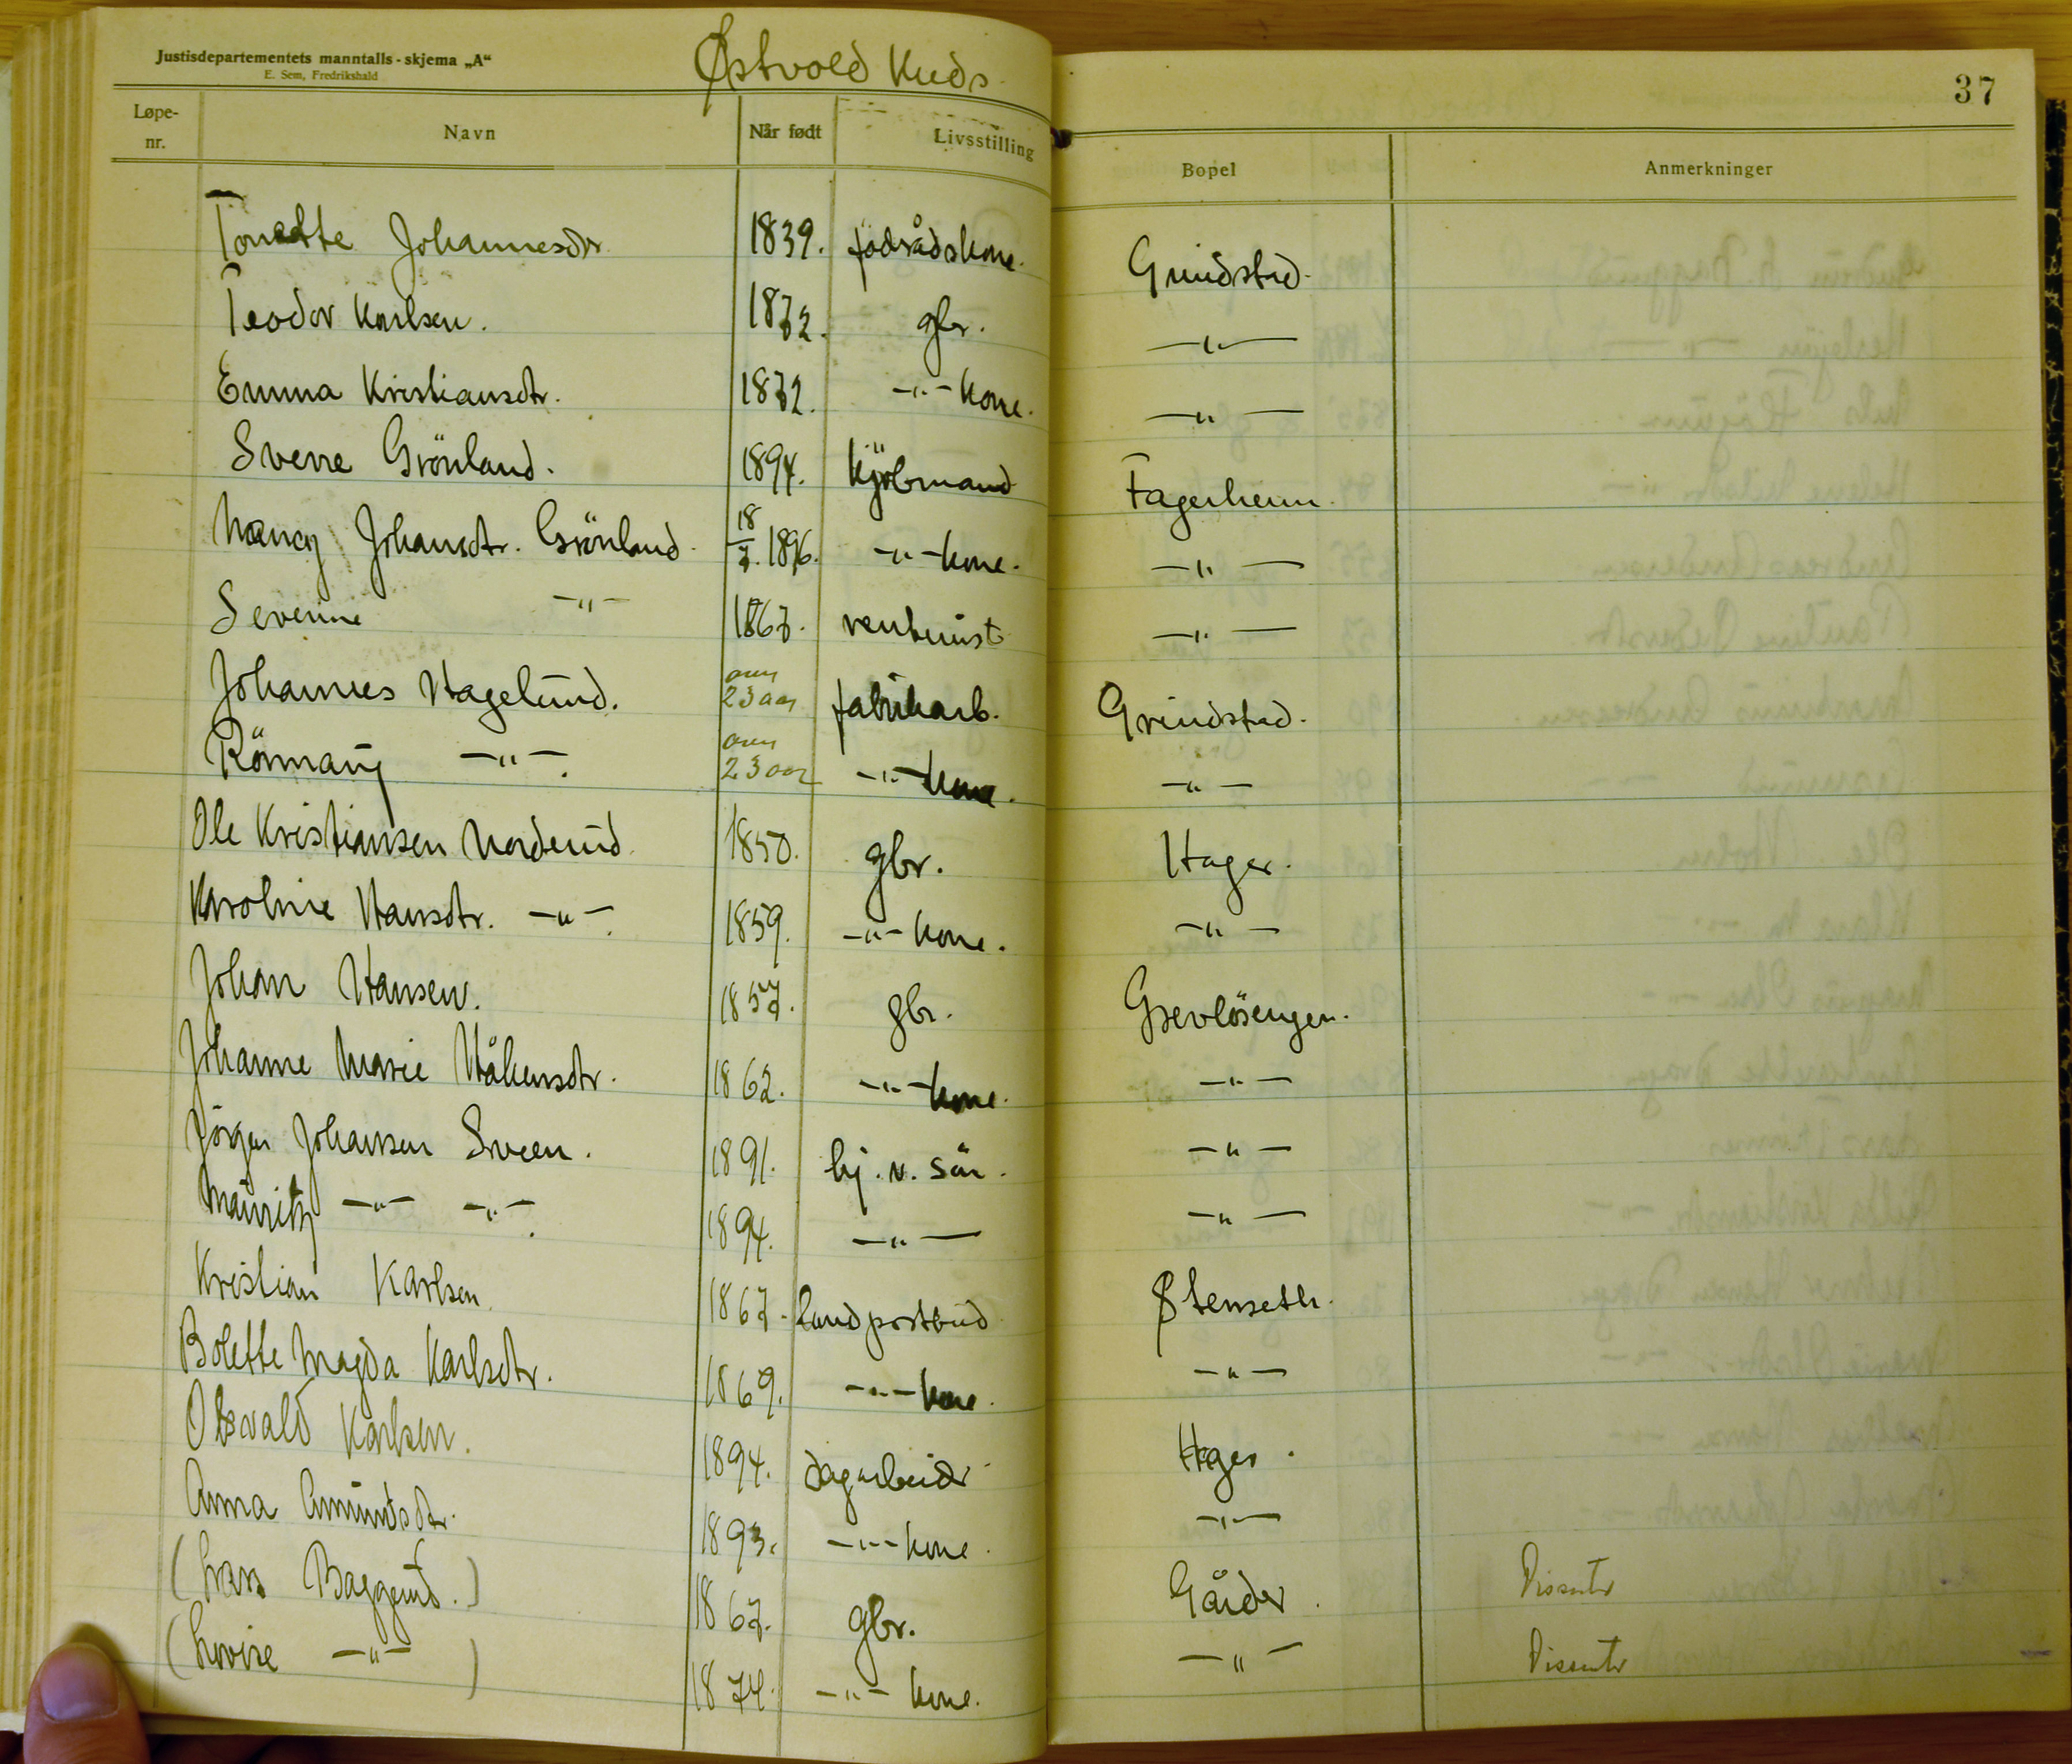 Justisdepartementets manntalls-skjema „A“
E. Sem, Fredrikshald
Østvold Kuds
37
Løpe-nr. Navn Når født Livsstilling Bopel Anmerkninger
Tonette Johannesdtr 1839. födrådskone. Grindstad.
Teodor Karlsen. 1872. gbr. -"-
Emma Kristiansdtr. 1872. -"- kone. -"-
Sverre Grönland. 1894. Kjöbmand Fagerheim.
Nancy Johansdtr. Grönland 18/7. 1896. -"- kone. -"-
Severine -"- 1867. rentenist -"-
Johannes Hagelund. over 23 aar fabrikarb. Grindstad.
Rönnaug -"-. over 23 aar -"- kone. -"-
Ole Kristiansen Norderud 1850. gbr. Hager.
Karoline Hansdtr. -"-. 1859. -"- kone. -"-
Johan Hansen. 1857. gbr. Grevlösengen.
Johanne Marie Håkensdtr. 1862. -"- kone. -"-
Jörgen Johansen Sveen. 1891. hj. v. sön. -"-
Mauritz -"- -"-. 1894. -"- -"-
Kristian Karlsen. 1867. Landpostbud Stenseth.
Bolette Magda Karlsdtr. 1869. -"- kone. -"-
Osvald Karlsen. 1894. Dagarbeider Hager.
Anna Amundsdtr. 1893. -"- kone. -"-
(Lars Baggerud.) 1867. gbr. Gårder. Dissenter
(Lovise -"- ) 1874. -"- kone. -"- Dissenter